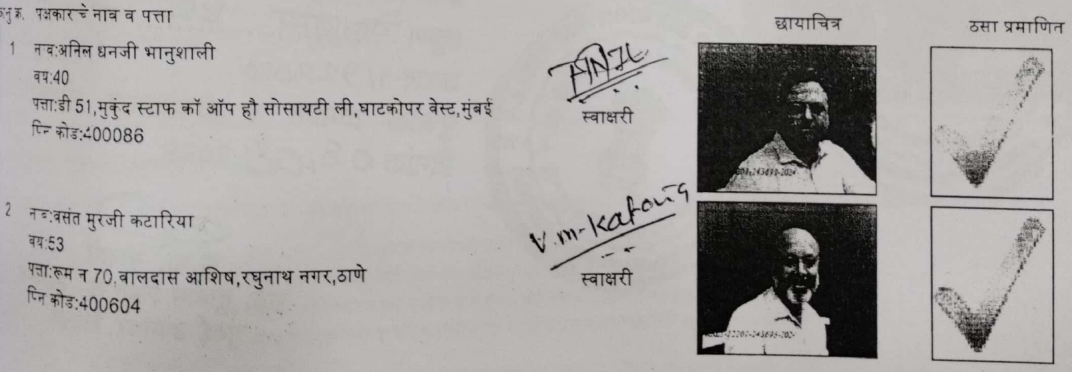 अनुक्र. पक्षकाराचे नाव व पत्ता
छायाचित्र
ठसा प्रमाणित
1 नाव:अनिल धनजी भानुशाली
वय:40
पत्ता:डी 51,मुकुंद स्टाफ कॉ ऑप हौ सोसायटी ली,घाटकोपर वेस्ट,मुंबई
पिन कोड:400086
अनिल
स्वाक्षरी
2 नाव:वसंत मुरजी कटारिया
वय:53
पत्ता:रूम न 70,वालदास आशिष,रघुनाथ नगर,ठाणे
पिन कोड:400604
V.M.Kataria
स्वाक्षरी